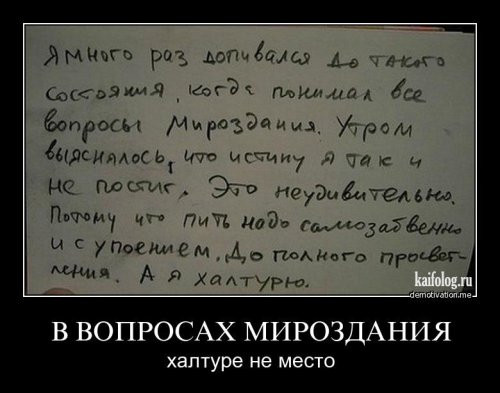 Я много раз допивался до такого
состояния, когда понимал все
вопросы Мироздания. Утром
выяснялось, что истину я так и
не постиг. Это неудивительно.
Потому что пить надо самозабвенно
и с упоением. До полного просвет-
ления. А я халтурю.
kaifolog.ru
demotivation.me
В ВОПРОСАХ МИРОЗДАНИЯ
халтуре не место